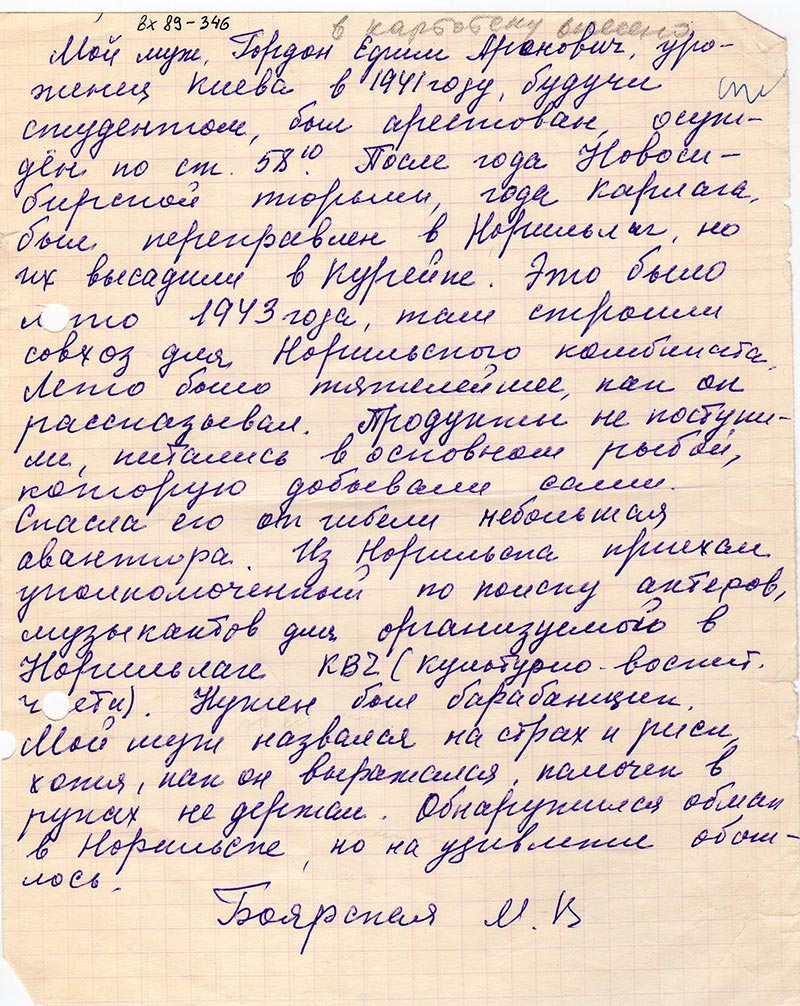 вх 89-346
в картотеку внесено
Мой муж, Гордон Ефим Аронович, уро-
женец Киева в 1941 году, будучи
студентом, был арестован, осуж-
дён по ст. 58¹⁰. После года Новоси-
бирской тюрьмы, года Карлага,
был переправлен в Норильлаг, но
их высадили в Курейке. Это было
лето 1943 года, там строили
совхоз для Норильского комбината.
Лето было тяжелейшее, как он
рассказывал. Продукты не поступи-
ли, питались в основном рыбой,
которую добывали сами.
Спасла его от гибели небольшая
авантюра. Из Норильска приехал
уполномоченный по поиску актеров,
музыкантов для организуемого в
Норильлаге КВЧ (культурно-воспит.
части). Нужен был барабанщик.
Мой муж назвался на страх и риск,
хотя, как он выражался, палочек в
руках не держал. Обнаружился обман
в Норильске, но на удивление обош-
лось.
Боярская М. В